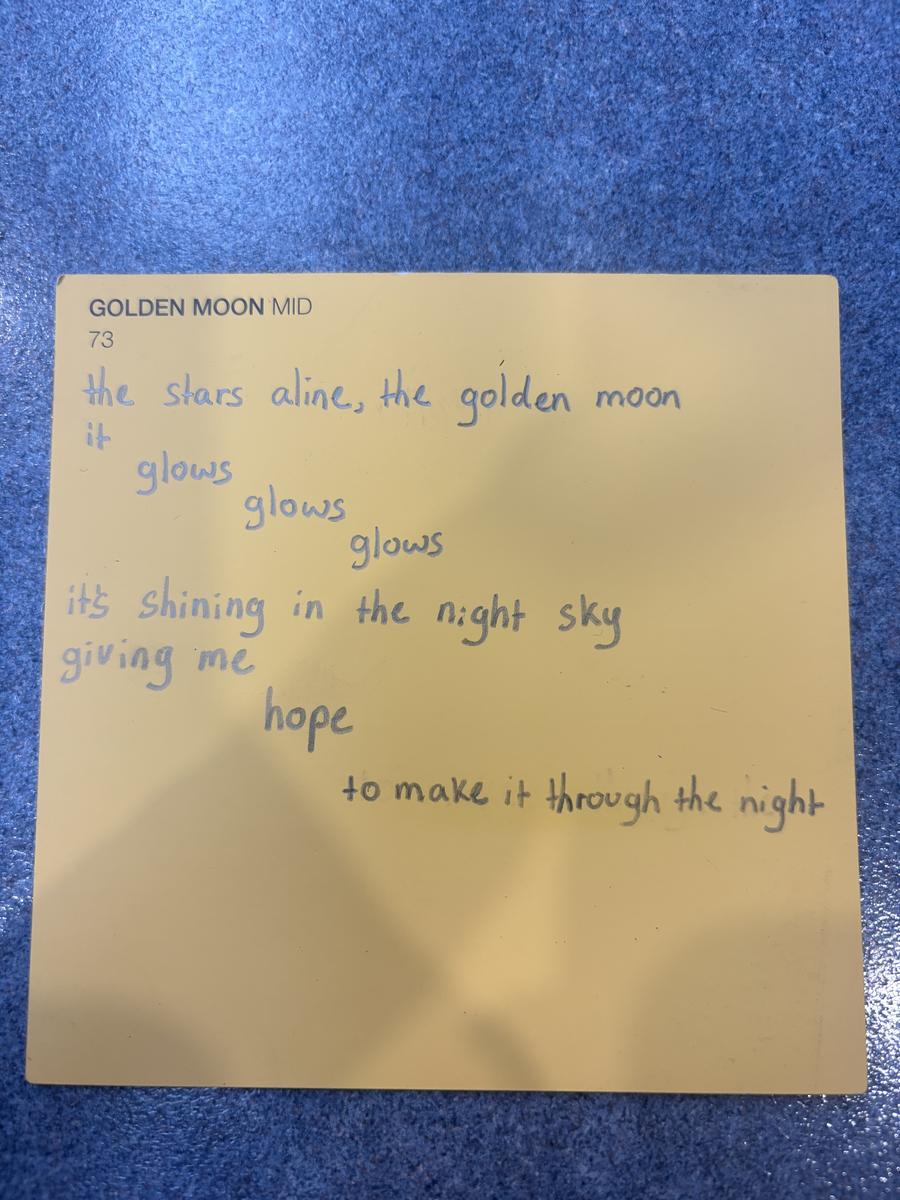 GOLDEN MOON MID
73
the stars aline, the golden moon
it
glows
glows
glows
it's shining in the night sky
giving me
hope
to make it through the night